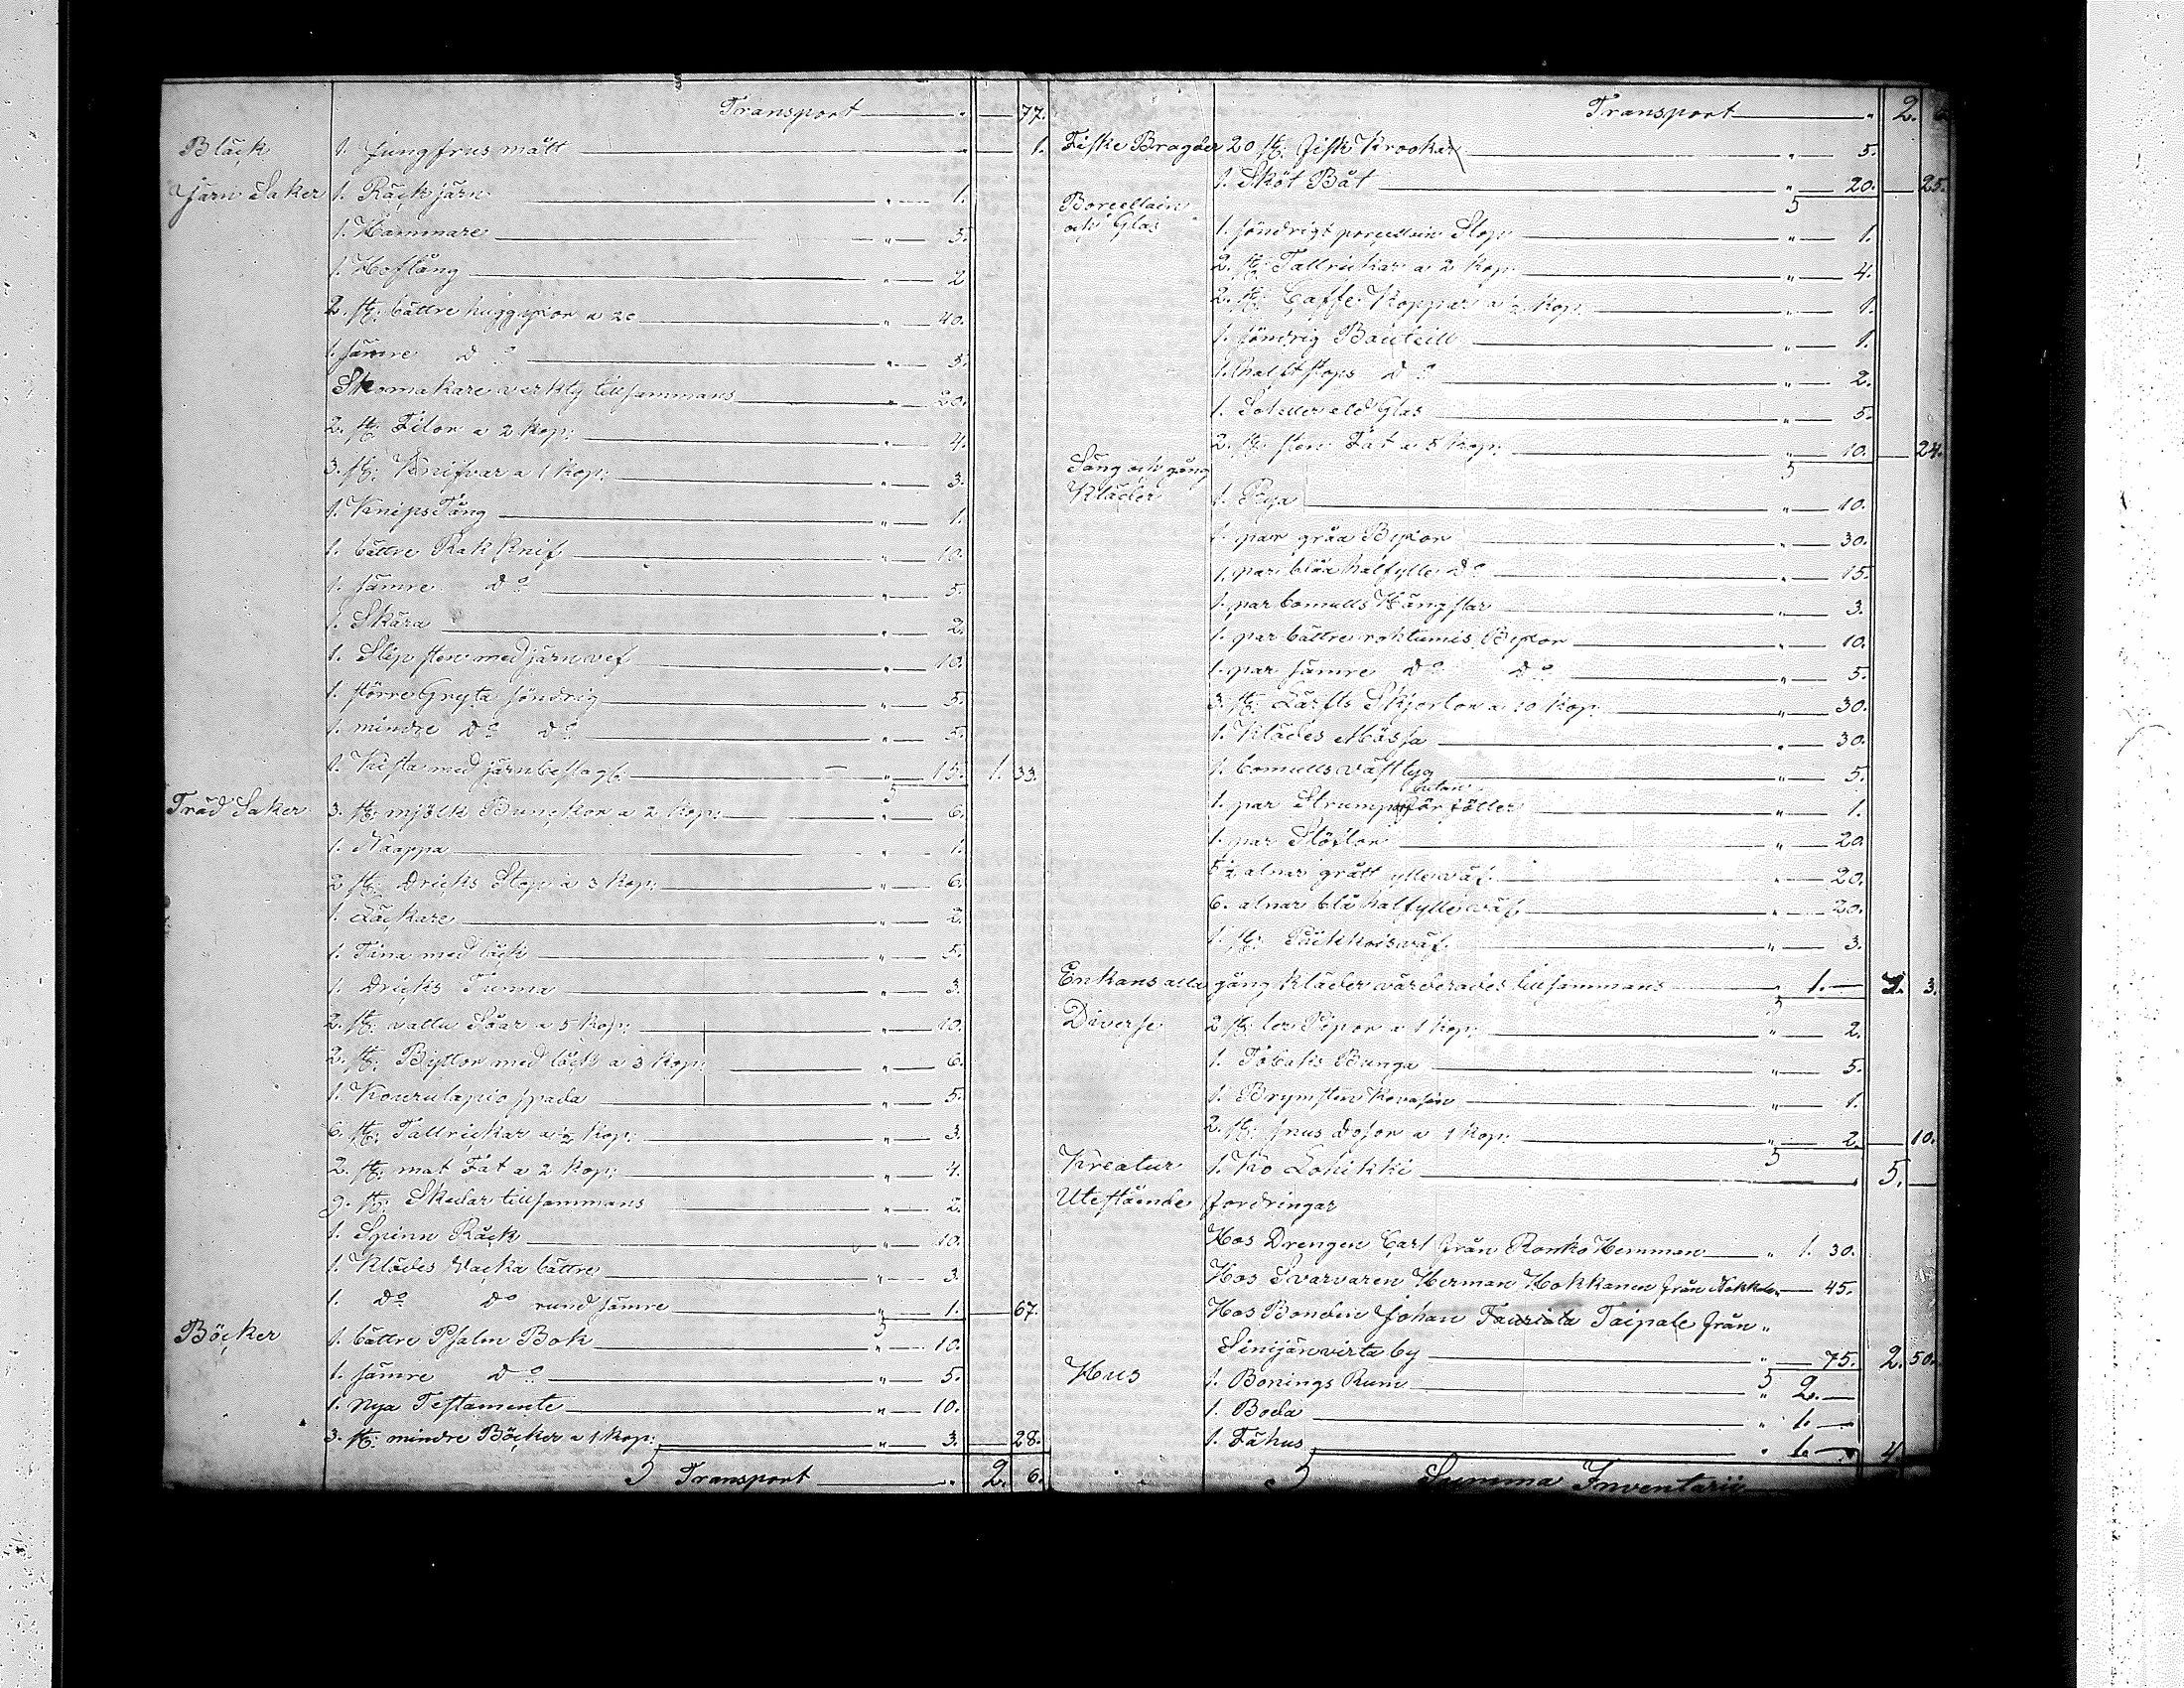 Transport " 77.
Bläck 1. Jungfrus mått 1.
Järn Saker 1. Räckjärn " 1.
1. Hammare " 3.
1. Hoftång " 2
2. st: bättre huggyxor a 20 " 40.
1. sämre do " 5.
Skomakare verktyg tillsammans " 20.
2. st: Filor a 2 kop: " 4.
3. st: Knifvar a 1 kop: " 3.
1. KnipsTång " 1.
1. bättre Rak knif " 10.
1. sämre do " 5.
1. Skära " 2.
1. Slip sten med järnvef " 10.
1. större Gryta söndrig " 5.
1. mindre do do " 5.
1. Kista med järnbeslag " 15. 1. 33.
Träd Saker 3. st: mjölk Bunckor a 2 kop: " 6.
1. Naappa " 1.
2 st: dricks Stop a 3 kop: " 6.
1. Läckare " 2.
1. Tina med läck " 5.
1. dricks Tunna " 3.
2. st: vattu Såar a 5 kop: " 10.
2. st: Byttor med läck a 3 kop: " 6.
1. Kourulapio spada " 5.
6. st: Tallrickar a ½ kop: " 3.
2. st: mat Fat a 2 kop: " 4.
9. st: Skedar tillsammans " 2.
1. Spinn Råck " 10.
1. Klädes Vacka bättre " 3.
1. do do rund sämre " 1. 67.
Böcker 1. bättre Psalm Bok " 10.
1. sämre do " 5.
1. Nya Testamente " 10.
3. st: mindre Böcker a 1 kop: " 3. 28.
Transport " 2. 6.
Transport " 2. 6
Fiske Bragder 20 st: fisk Krookar " 5.
1. Sköt Båt " 20. 25.
Porcellain
och Glas 1. söndrigt porcellain Stop " 1.
2. st: Tallrickar a 2 kop: " 4.
2. st: Caffe Koppar a ½ kop: " 1.
1. söndrig Bouteill " 1.
1. halft stops do " 2.
1. Glas " 5.
2. st: sten Fat a 5 kop: " 10. 24.
Säng och gång
Kläder 1. Rya " 10.
1. par gråa Byxor " 30.
1. par blåa halfylle do " 15.
1. par bomulls Hängslar " 3.
1. par bättre Byxor " 10.
1. par sämre do do " 5.
3. st: Lärfts Skjortor a 10 kop: " 30.
1. Klädes Mössa " 30.
1. bomulls västtyg " 5.
1. par Strumpor utan fötter " 1.
1. par Stöflor " 20
5½ alnar grått yllewäf " 20.
6. alnar blå halfylle wäf " 20.
1. st: " 3.
Enkans alla gång kläder wärderades tillsammans " 1.— 3.
Diverse 2 st: ler Pipor a 1 kop: " 2.
1. Tobaks Punga " 5.
1. Brynsten " 1.
2. st: snus dosor a 1 kop: " 2. 10.
Kreatur 1. Ko Lohikki " 5.
Utestående fordringar
Hos Drengen Carl från Ronko Hemman " 1. 30.
Hos Svarvaren Herman Hokkanen från " 45.
Hos Bonden Johan Taipale från "
Sinijänvirta by " 75. 2. 50.
Hus 1. Bonings Rum " 2.—
1. Boda " 1.—
1. Fähus " 1.— 4.
Summa Inventarii